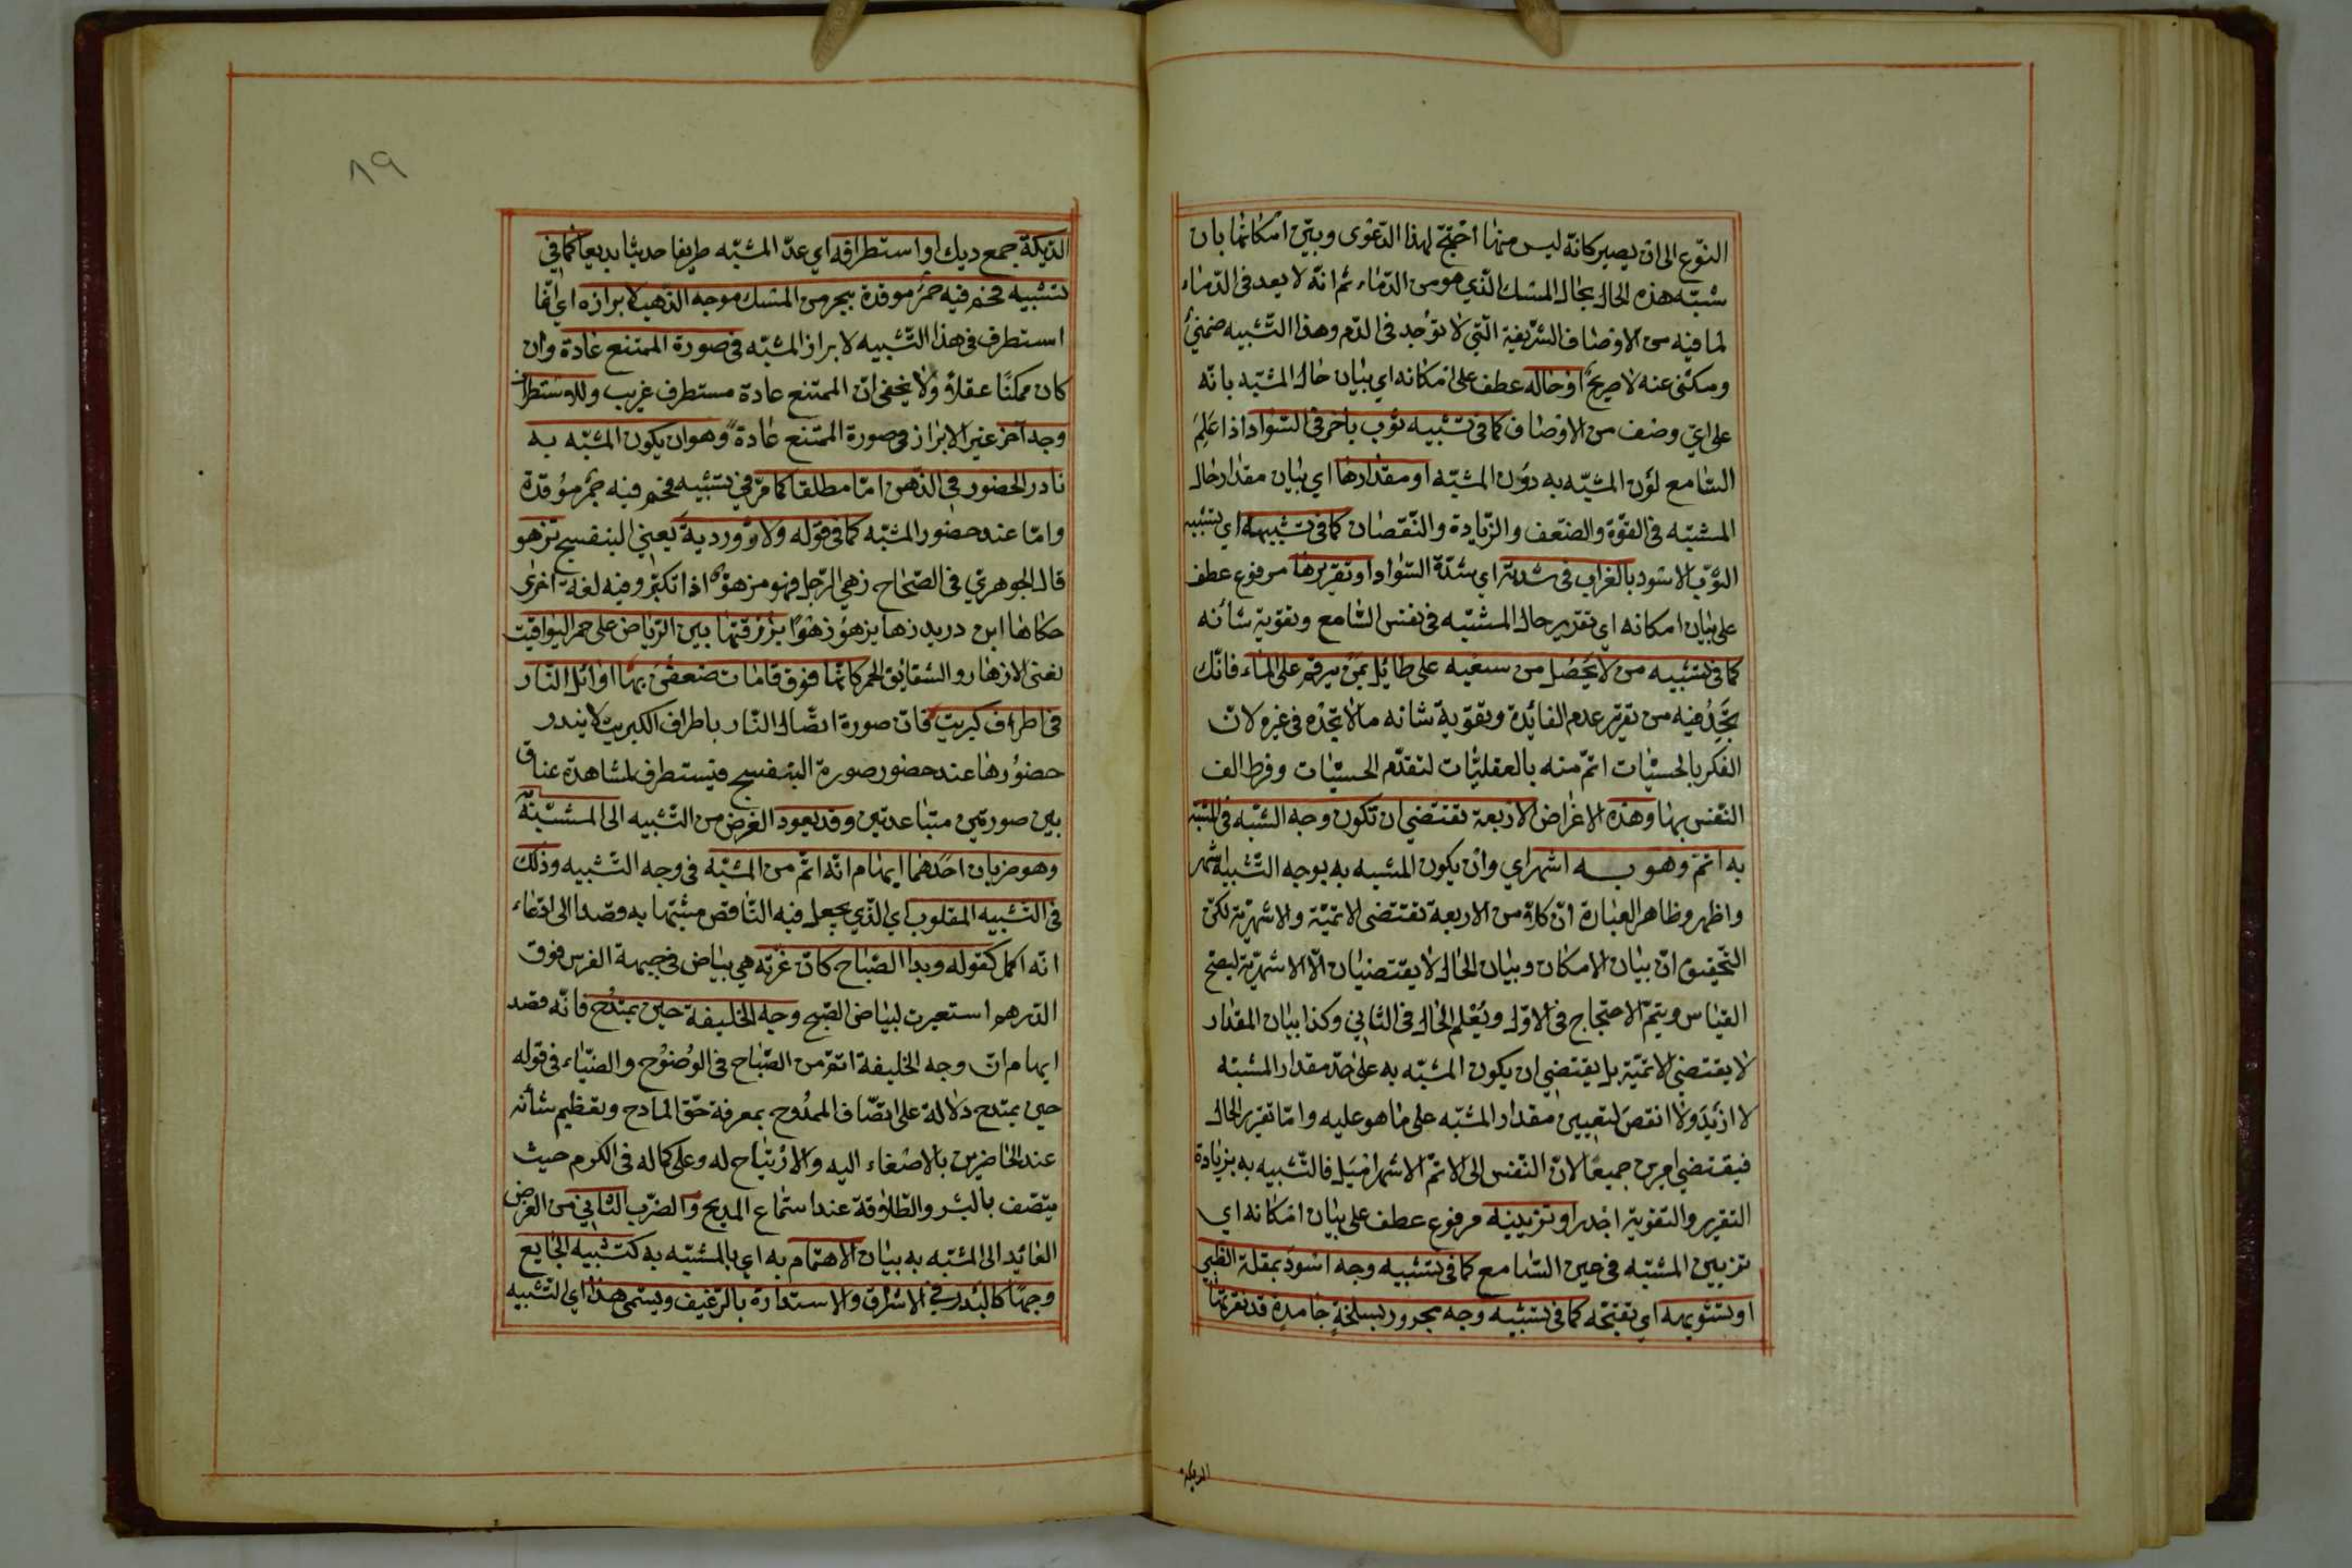 النوع الى ان يصير كانه ليس منها احتج لهذا الدعوى وبين امكانها بان
شبه هذه الحال بحال المسك الذي هو من الدماء ثم انه لا يعد فى الدماء
لما فيه من الاوصاف الشريفة التي لا توجد فى الدم وهذا التشبيه ضمنيّ
ومكنى عنه لا صريح او حاله عطف على امكانه اي بيان حال المشبه بانه
على اي وصف من الاوصاف كما فى تشبيه ثوب باخر فى السواد اذا علم
السامع لون المشبه به دون المشبه او مقدارها اي بيان مقدار حال
المشبه فى القوة والضعف والزيادة والنقصان كما فى تشبيهه اي تشبيه
الثوب الاسود بالغراب فى شدته اي شدة السواد او تقريرها مرفوع عطف
على بيان امكانه اي تقرير حال المشبه فى نفس السامع وتقوية شأنه
كما فى تشبيه من لا يحصل من سعيه على طايل بمن يرقم على الماء فانك
تجد فيه من تقرير عدم الفائدة وتقوية شانه ما لا تجده فى غيره لان
الفكر بالحسيات اتم منه بالعقليات لتقدم الحسيات وفرط الف
النفس بها وهذه الاغراض الاربعة تقتضي ان تكون وجه الشبه فى المشبه
به اتم وهو به اشهر اي وان يكون المشبه به بوجه التشبيه اشهر
واظهر وظاهر العبارة ان كلا من الاربعة تقتضى الاتمية والاشهرية لكن
التحقيق ان بيان الامكان وبيان الحال لا يقتضيان الا الاشهرية ليصح
القياس ويتم الاحتجاج فى الاول ويعلم الحال فى الثانى وكذا بيان المقدار
لا يقتضي الاتمية بل يقتضي ان يكون المشبه به على حد مقدار المشبه
لا ازيد ولا انقص لتعيين مقدار المشبه على ما هو عليه واما تقرير الحال
فيقتضي امرين جميعا لان النفس الى الاتم الاشهر اميل فالتشبيه به بزيادة
التقرير والتقوية اجدر او تزيينه مرفوع عطف على بيان امكانه اي
تزيين المشبه فى عين السامع كما فى تشبيه وجه اسود بمقلة الظبي
او تشويهه اي تقبيحه كما فى تشبيه وجه مجدور بسلحة جامدة قد نقرتها
الديكة
٨٩
الديكة جمع ديك او استطرافه اي عد المشبه طريفا حديثا بديعا كما فى
تشبيه فحم فيه جمر موقدة ببحر من المسك موجه الذهب لابرازه اي انما
استطرف فى هذا التشبيه لابراز المشبه فى صورة الممتنع عادة وان
كان ممكنا عقلا ولا يخفى ان الممتنع عادة مستطرف غريب وللاستطراف
وجه آخر غير الابراز فى صورة الممتنع عادة وهو ان يكون المشبه به
نادر الحضور فى الذهن اما مطلقا كما مر فى تشبيه فحم فيه جمر موقدة
واما عند حضور المشبه كما فى قوله ولازوردية يعني البنفسج تزهو
قال الجوهري فى الصحاح زهي الرجل فهو مزهوّ اذا تكبر وفيه لغة اخرى
حكاها ابن دريد زها يزهو زهوًا بزرقتها بين الرياض على حمر اليواقيت
يعنى الازهار والشقايق الحمر كانها فوق قامات ضعفن بها اوائل النار
فى اطراف كبريت فان صورة اتصال النار باطراف الكبريت لا يندر
حضورها عند حضور صورة البنفسج فيستطرف لمشاهدة عناق
بين صورتين متباعدتين وقد يعود الغرض من التشبيه الى المشبه به
وهو ضربان احدهما ايهام انه اتم من المشبه فى وجه التشبيه وذلك
فى التشبيه المقلوب اي الذي يجعل فيه الناقص مشبها به قصدا الى ادعاء
انه اكمل كقوله وبدا الصباح كان غرته هي بياض فى جبهة الفرس فوق
الدرهم استعيرت لبياض الصبح وجه الخليفة حين يمتدح فانه قصد
ايهام ان وجه الخليفة اتم من الصباح فى الوضوح والضياء فى قوله
حين يمتدح دلالة على اتصاف الممدوح بمعرفة حق المادح وتعظيم شأنه
عند الحاضرين بالاصغاء اليه والارتياح له وعلى كماله فى الكرم حيث
يتصف بالبشر والطلاقة عند استماع المديح والضرب الثاني من الغرض
العائد الى المشبه به بيان الاهتمام به اي بالمشبه به كتشبيه الجايع
وجها كالبدر في الاشراق والاستدارة بالرغيف ويسمى هذا اي التشبيه